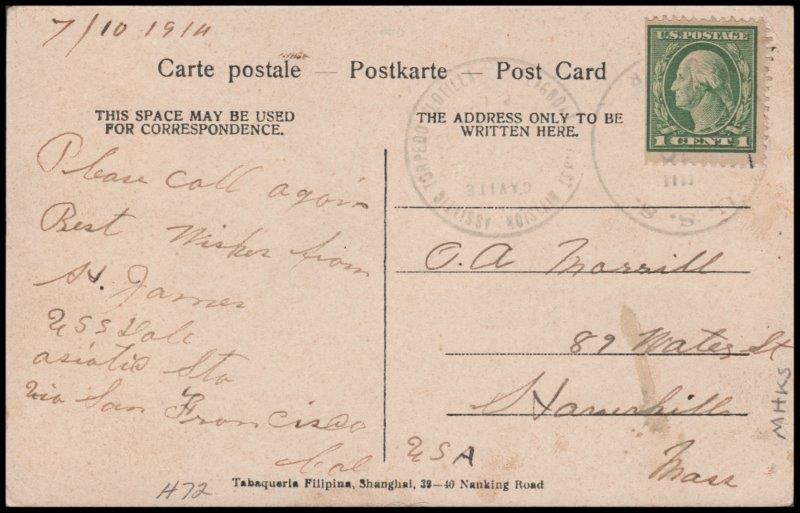 7/10 1914
Carte postale — Postkarte — Post Card
THIS SPACE MAY BE USED
FOR CORRESPONDENCE.
THE ADDRESS ONLY TO BE
WRITTEN HERE.
U.S. POSTAGE
1 CENT 1
TORPEDO FLOTILLA FIRST DIVISION, ASIATIC
CAVITE
U. S. S.
Please call again
Best Wishes from
H. James
USS Dale
asiatic Sta
via San Francisco
Cal
O.A Morrill
89 Water St
Haverhill
USA
Mass
MHKS
H72
Tabaqueria Filipina, Shanghai, 39—40 Nanking Road